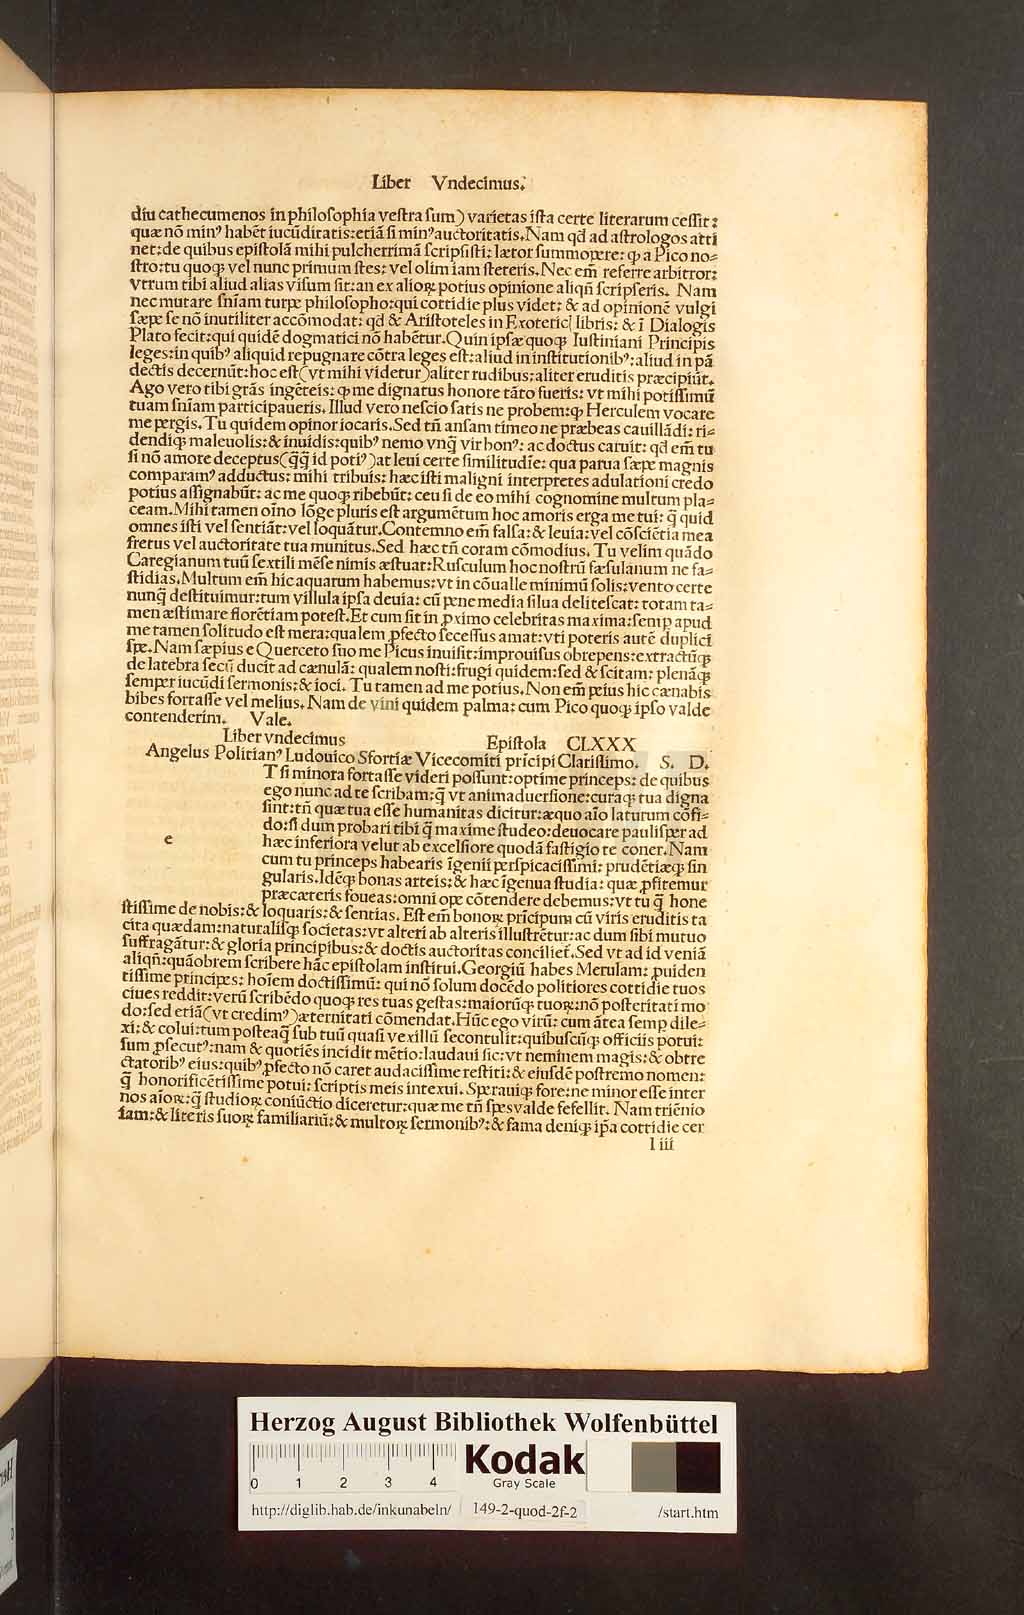 Liber Vndecimus.
diu cathecumenos in philosophia vestra sum) varietas ista certe literarum cessit:
quæ nō minꝰ habēt iucūditatis: etiā si minꝰ auctoritatis. Nam qđ ad astrologos atti
net: de quibus epistolā mihi pulcherrimā scripsisti: lætor summopere: ꝙ a Pico no⸗
stro: tu quoqꝫ vel nunc primum stes: vel olim iam steteris. Nec em̄ referre arbitror:
vtrum tibi aliud alias visum sit: an ex alioꝝ potius opinione aliqñ scripseris. Nam
nec mutare sniam turpe philosopho: qui cottidie plus videt: & ad opinionē vulgi
sæpe se nō inutiliter accōmodat: qđ & Aristoteles in Exotericꝭ libris: & ī Dialogis
Plato fecit: qui quidē dogmatici nō habētur. Quin ipsæ quoqꝫ Iustiniani Principis
leges: in quibꝰ aliquid repugnare cōtra leges est: aliud in institutionibꝰ: aliud in pā
dectis decernūt: hoc est (vt mihi videtur) aliter rudibus: aliter eruditis præcipiūt.
Ago vero tibi grās ingēteis: ꝙ me dignatus honore tāto fueris: vt mihi potissimū
tuam sniam participaueris. Illud vero nescio satis ne probem: ꝙ Herculem vocare
me pergis. Tu quidem opinor iocaris. Sed tñ ansam timeo ne præbeas cauillādi: ri⸗
dendiqꝫ maleuolis: & inuidis: quibꝰ nemo vnq̄ vir bonꝰ: ac doctus caruit: qđ em̄ tu
si nō amore deceptus (q̄q̄ id potiꝰ) at leui certe similitudīe: qua parua sæpe magnis
comparamꝰ adductus: mihi tribuis: hæc isti maligni interpretes adulationi credo
potius assignabūt: ac me quoqꝫ ribebūt: ceu si de eo mihi cognomine multum pla⸗
ceam. Mihi tamen oīno lōge pluris est argumētum hoc amoris erga me tui: q̄ quid
omnes isti vel sentiāt: vel loquātur. Contemno em̄ falsa: & leuia: vel cōsciētia mea
fretus vel auctoritate tua munitus. Sed hæc tñ coram cōmodius. Tu velim quādo
Caregianum tuū sextili mēse nimis æstuat: Rusculum hoc nostrū fæsulanum ne fa⸗
stidias. Multum em̄ hic aquarum habemus: vt in cōualle minimū solis: vento certe
nunq̄ destituimur: tum villula ipsa deuia: cū pene media silua delitescat: totam ta⸗
men æstimare florētiam potest. Et cum sit in ꝓximo celebritas maxima: semꝑ apud
me tamen solitudo est mera: qualem ꝓfecto secessus amat: vti poteris autē duplici
spe. Nam sæpius e Querceto suo me Picus inuisit: improuisus obrepens: extractūqꝫ
de latebra secū ducit ad cænulā: qualem nosti: frugi quidem: sed & scitam: plenāqꝫ
semper iucūdi sermonis: & ioci. Tu tamen ad me potius. Non em̄ peius hic cænabis
bibes fortasse vel melius. Nam de vini quidem palma: cum Pico quoqꝫ ipso valde
contenderim. Vale.
Liber vndecimus Epistola CLXXX
Angelus Politianꝰ Ludouico Sfortiæ Vicecomiti prīcipi Clarissimo. S. D.
e
T si minora fortasse videri possunt: optime princeps: de quibus
ego nunc ad te scribam: q̄ vt animaduersione: curaqꝫ tua digna
sint: tñ quæ tua esse humanitas dicitur: æquo aīo laturum cōfi⸗
do: si dum probari tibi q̄ maxime studeo: deuocare paulisper ad
hæc inferiora velut ab excelsiore quodā fastigio te coner. Nam
cum tu princeps habearis īgenii perspicacissimi: prudētiæqꝫ sin
gularis. Idēqꝫ bonas arteis: & hæc īgenua studia: quæ ꝓfitemur
præcæteris foueas: omni ope cōtendere debemus: vt tu q̄ hone
stissime de nobis: & loquaris: & sentias. Est em̄ bonoꝝ prīcipum cū viris eruditis ta
cita quædam: naturalisqꝫ societas: vt alteri ab alteris illustrētur: ac dum sibi mutuo
suffragātur: & gloria principibus: & doctis auctoritas conciliet̄. Sed vt ad id veniā
aliqñ: quāobrem scribere hāc epistolam institui. Georgiū habes Merulam: ꝓuiden
tissime princeps: hoīem doctissimū: qui nō solum docēdo politiores cottidie tuos
ciues reddit: verū scribēdo quoqꝫ res tuas gestas: maiorūqꝫ tuoꝝ: nō posteritati mo
do: sed etiā (vt credimꝰ) æternitati cōmendat. Hūc ego virū: cum ātea semꝑ dile⸗
xi: & colui: tum posteaq̄ sub tuū quasi vexillū se contulit: quibuscūqꝫ officiis potui:
sum ꝓsecutꝰ: nam & quotiēs incidit mētio: laudaui sic: vt neminem magis: & obtre
ctatoribꝰ eius: quibꝰ ꝓfecto nō caret audacissime restiti: & eiusdē postremo nomen:
q̄ honorificētissime potui: scriptis meis intexui. Sperauiqꝫ fore: ne minor esse inter
nos aīoꝝ: q̄ studioꝝ coniūctio diceretur: quæ me tñ spes valde fefellit. Nam triēnio
iam: & literis suoꝝ familiariū: & multoꝝ sermonibꝰ: & fama deniqꝫ ip̄a cottidie cer
l iii
Herzog August Bibliothek Wolfenbüttel
0 1 2 3 4
Kodak
Gray Scale
http://diglib.hab.de/inkunabeln/ 149-2-quod-2f-2 /start.htm